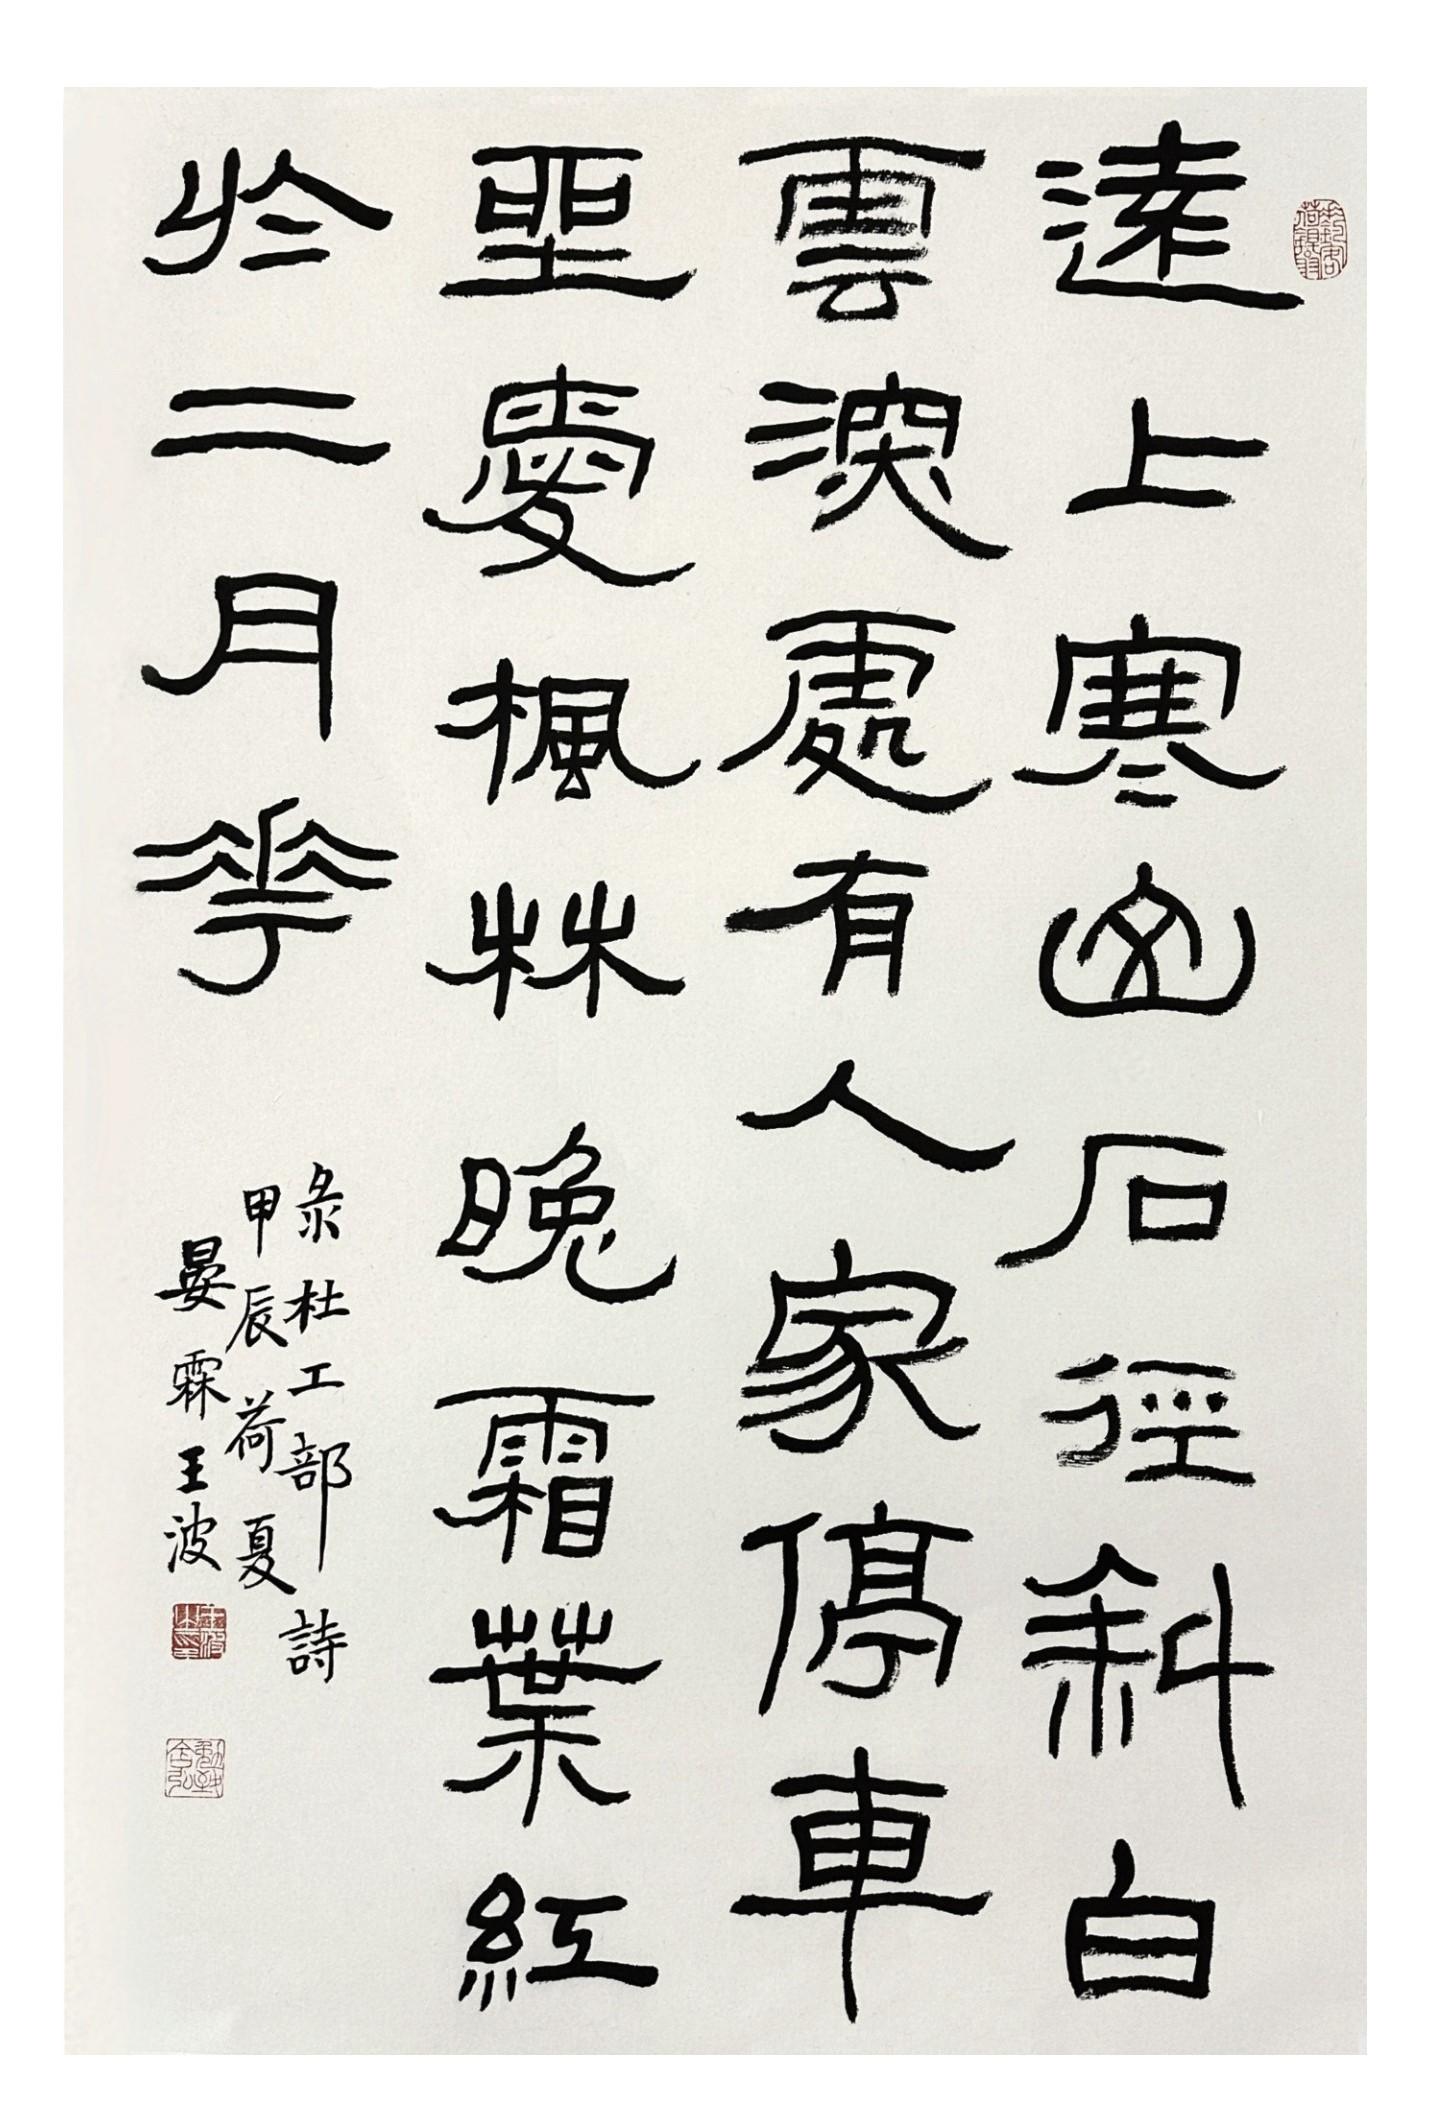 遠上寒山石徑斜白
雲深處有人家停車
坐愛楓林晚霜葉紅
於二月花
录杜工部詩
甲辰荷夏
晏霖王波